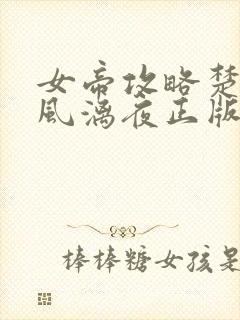 女帝攻略楚
风漓夜正版
棒棒糖女孩是